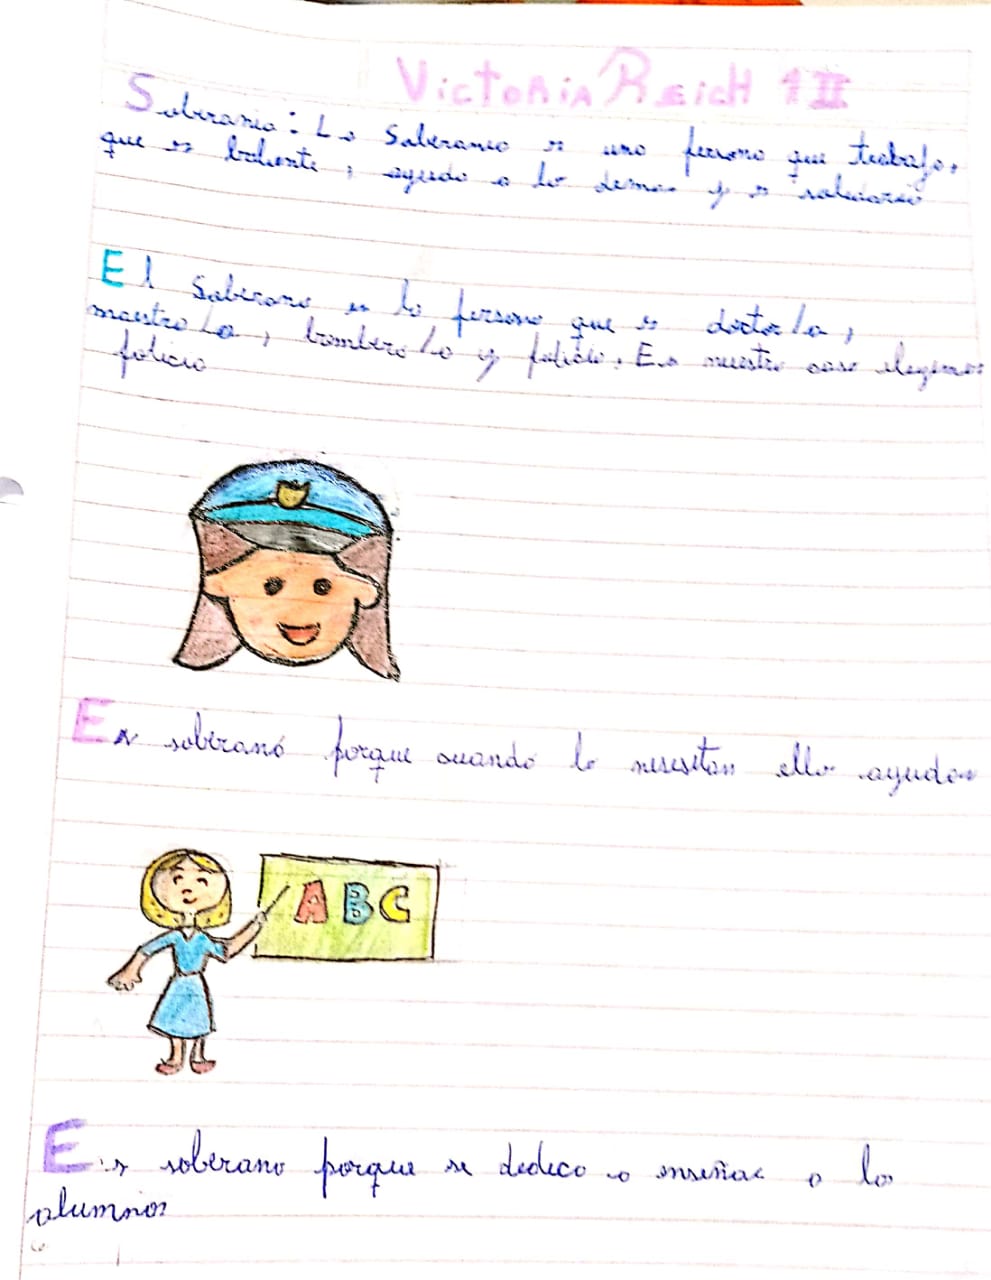 Victoria Reich 1 II
Soberania: La Soberania es una persona que trabaja,
que es baliente, ayuda a lo demas y es solidario
El Soberano es la persona que es doctor/a,
maestro/a, bombero/a y policia. En nuestro caso elegimos
policia
Es soberano porque cuando lo nesesitan ello ayudan
A B C
Es soberano porque se dedica a enseñar a los
alumnos